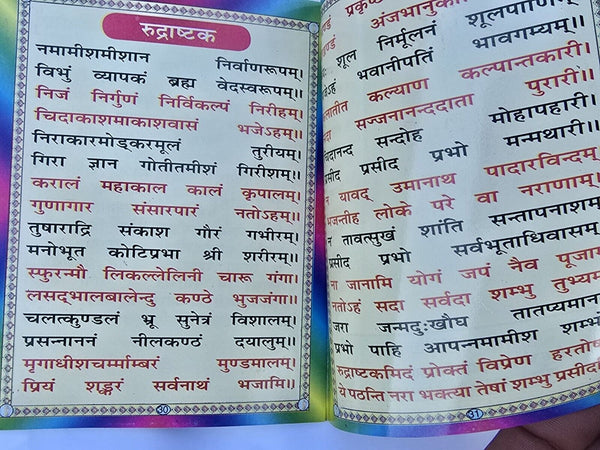 रुद्राष्टक
नमामीशमीशान निर्वाणरूपम्।
विभुं व्यापकं ब्रह्म वेदस्वरूपम्।।
निजं निर्गुणं निर्विकल्पं निरीहम्।
चिदाकाशमाकाशवासं भजेऽहम्।।
निराकारमोड्करमूलं तुरीयम्।
गिरा ज्ञान गोतीतमीशं गिरीशम्।।
करालं महाकाल कालं कृपालम्।
गुणागार संसारपारं नतोऽहम्।।
तुषाराद्रि संकाश गौरं गभीरम्।
मनोभूत कोटिप्रभा श्री शरीरम्।।
स्फुरन्मौ लिकल्लेलिनी चारू गंगा।
लसद्भालबालेन्दु कण्ठे भुजजंगा।।
चलत्कुण्डलं भ्रू सुनेत्रं विशालम्।
प्रसन्नाननं नीलकण्ठं दयालुम्।।
मृगाधीशचर्म्माम्बरं मुण्डमालम्।
प्रियं शङ्करं सर्वनाथं भजामि।।
30
प्रकृष्टं
अंजभानुको
शूल निर्मूलनं शूलपाणिम्।
ऽहं भवानीपतिं भावगम्यम्।।
कल्याण कल्पान्तकारी।
सज्जनानन्ददाता पुरारी।।
सन्दोह मोहापहारी।
प्रसीद प्रसीद प्रभो मन्मथारी।।
यावद् उमानाथ पादारविन्दम्
भजन्तीह लोके परे वा नराणाम्।
तावत्सुखं शांति सन्तापनाशम्
प्रसीद प्रभो सर्वभूताधिवासम्
जानामि योगं जपं नैव पूजाम
नतोऽहं सदा सर्वदा शम्भु तुभ्यम
जरा जन्मदुःखौघ तातप्यमान
प्रभो पाहि आपन्नमामीश शम्भो
रुद्राष्टकमिदं प्रोक्तं विप्रेण हरतोष
ये पठन्ति नरा भक्त्या तेषां शम्भु प्रसीद
31